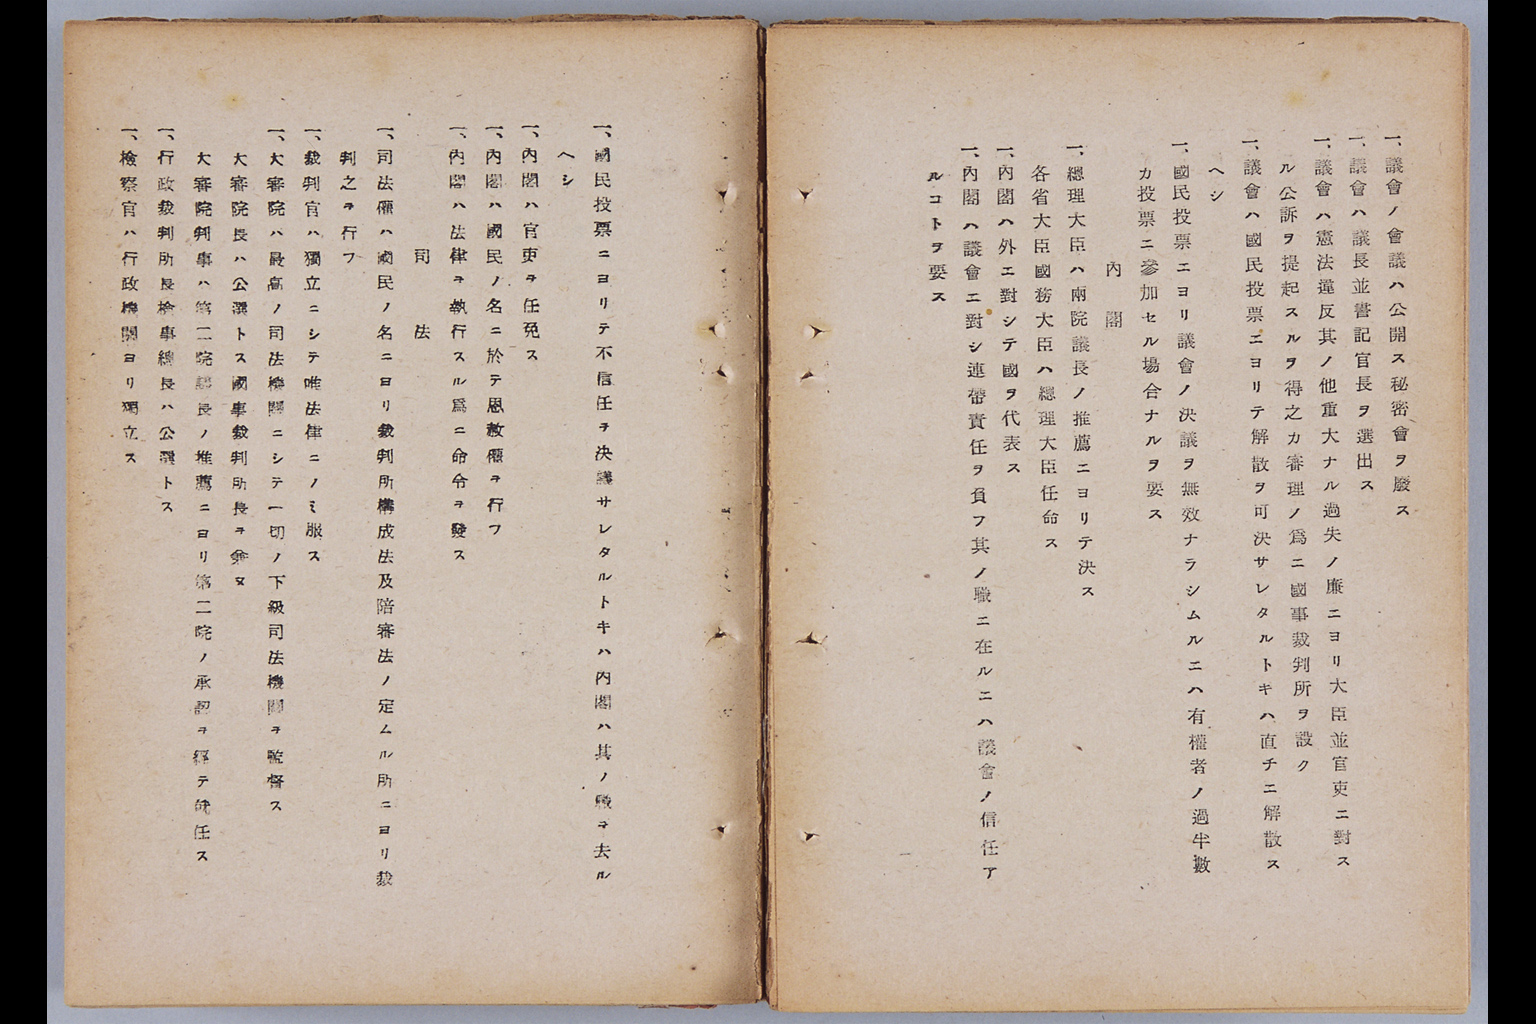 一、議會ノ會議ハ公開ス秘密會ヲ廢ス
一、議會ハ議長並書記官長ヲ選出ス
一、議會ハ憲法違反其ノ他重大ナル過失ノ廉ニヨリ大臣並官吏ニ對ス
ル公訴ヲ提起スルヲ得之カ審理ノ爲ニ國事裁判所ヲ設ク
一、議會ハ國民投票ニヨリテ解散ヲ可決サレタルトキハ直チニ解散ス
ヘシ
一、國民投票ニヨリ議會ノ決議ヲ無效ナラシムルニハ有權者ノ過半數
カ投票ニ參加セル場合ナルヲ要ス
內閣
一、總理大臣ハ兩院議長ノ推薦ニヨリテ決ス
各省大臣國務大臣ハ總理大臣任命ス
一、內閣ハ外ニ對シテ國ヲ代表ス
一、內閣ハ議會ニ對シ連帶責任ヲ負フ其ノ職ニ在ルニハ議會ノ信任ア
ルコトヲ要ス
一、國民投票ニヨリテ不信任ヲ決議サレタルトキハ內閣ハ其ノ職ヲ去ル
ヘシ
一、內閣ハ官吏ヲ任免ス
一、內閣ハ國民ノ名ニ於テ恩赦權ヲ行フ
一、內閣ハ法律ヲ執行スル爲ニ命令ヲ發ス
司法
一、司法權ハ國民ノ名ニヨリ裁判所構成法及陪審法ノ定ムル所ニヨリ裁
判之ヲ行フ
一、裁判官ハ獨立ニシテ唯法律ニノミ服ス
一、大審院ハ最高ノ司法機關ニシテ一切ノ下級司法機關ヲ監督ス
大審院長ハ公選トス國事裁判所長ヲ兼ヌ
大審院判事ハ第二院議長ノ推薦ニヨリ第二院ノ承認ヲ經テ就任ス
一、行政裁判所長檢事總長ハ公選トス
一、檢察官ハ行政機關ヨリ獨立ス